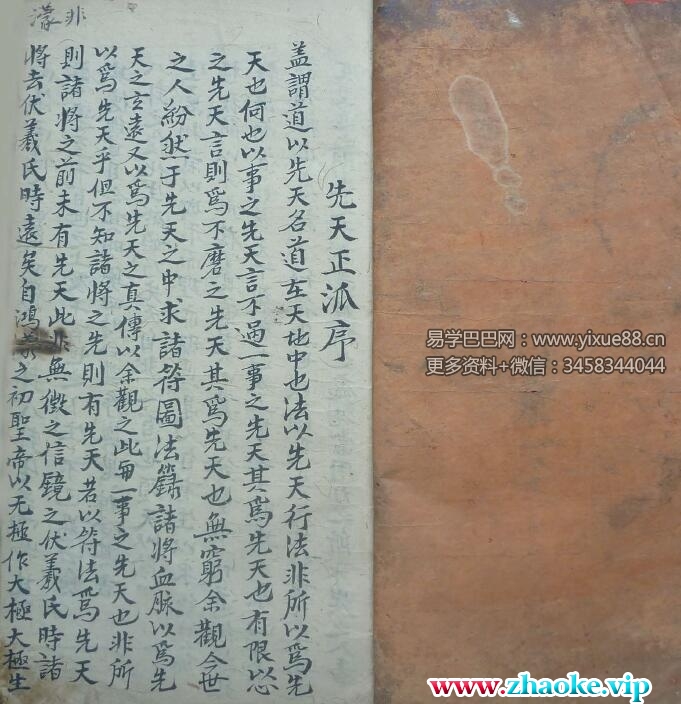 先天正派序
盖謂道以先天名道在天地中也法以先天行法非所以爲先
天也何也以事之先天言不過一事之先天其爲先天也有限以
之先天言則爲不磨之先天其爲先天也無窮余觀今世
之人紛然于先天之中求諸符圖法籙諸將血脉以爲先
天之玄遠又以爲先天之真傳以余觀之此毎一事之先天也非所
以爲先天乎但不知諸將之先則有先天若以符法爲先天
則諸將之前未有先天此非無徴之信鏡之伏羲氏時諸
將去伏羲氏時遠矣自鴻之初聖帝以无極作大極大極生
非濛
易学巴巴网：www.yixue88.cn
更多资料+微信：3458344044
www.zhaoke.vip